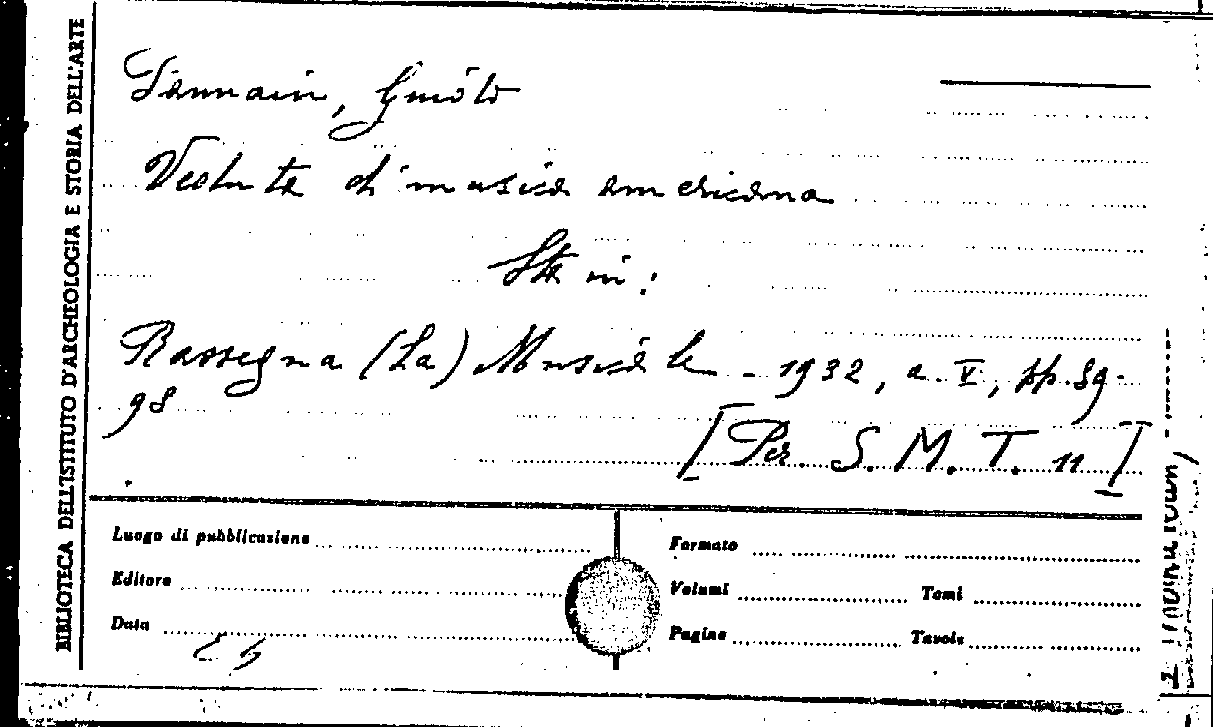 Guido
Veduta di musica americana
Sta in:
Rassegna (La) Musicale - 1932, a. V, pp. 89-
98
[Per. S. M. T. 11]
BIBLIOTECA DELL'ISTITUTO D'ARCHEOLOGIA E STORIA DELL'ARTE
Luogo di pubblicazione
Editore
Data
Formato
Volumi Tomi
Pagine Tavole